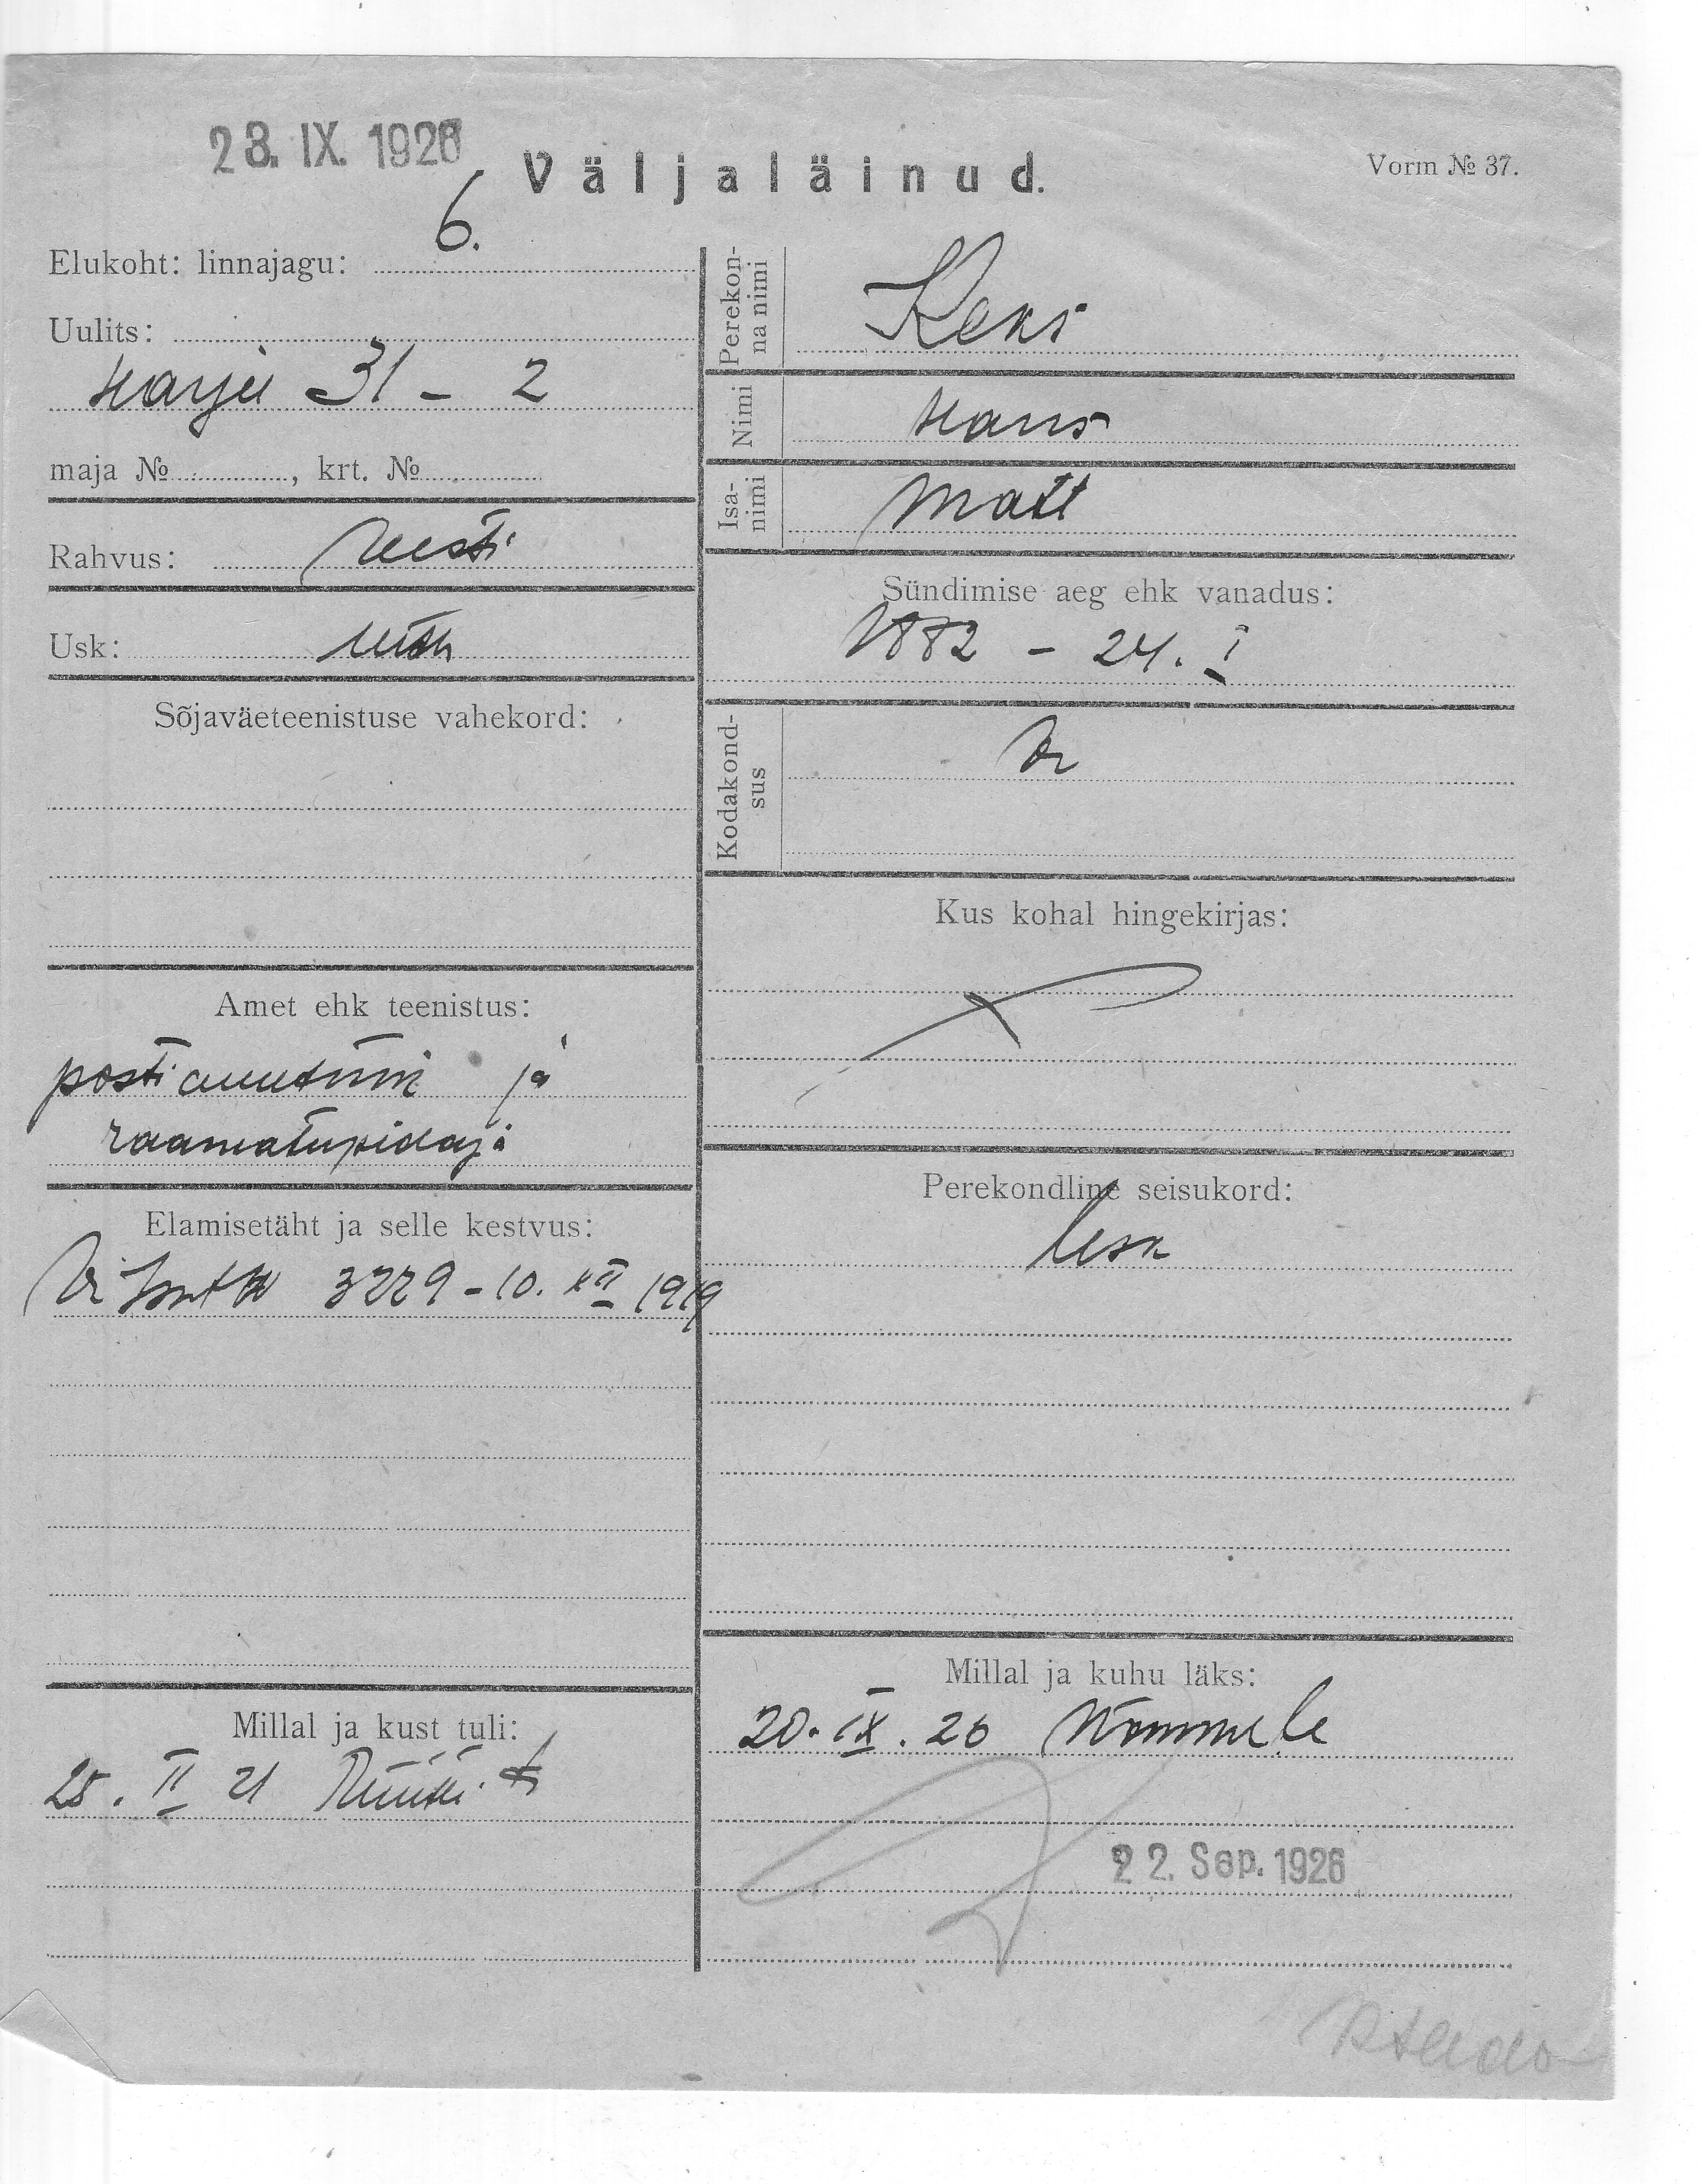 23. IX. 1926
Väljaläinud.
Vorm № 37.
Elukoht: linnajagu: 6.
Uulits:
Harju 31 - 2
maja № , krt. №
Rahvus: eesti
Usk: luth
Sõjaväeteenistuse vahekord:
Amet ehk teenistus:
postiametnik ja
raamatupidaja
Elamisetäht ja selle kestvus:
3229 - 10. XII 1919
Millal ja kust tuli:
25. II 21
Perekonna nimi
Keks
Nimi
Hans
Isanimi
Matt
Sündimise aeg ehk vanadus:
1882 - 24. I
Kodakondsus
Kus kohal hingekirjas:
Perekondline seisukord:
lesk
Millal ja kuhu läks:
20. IX. 26 Nõmmele
22. Sep. 1926